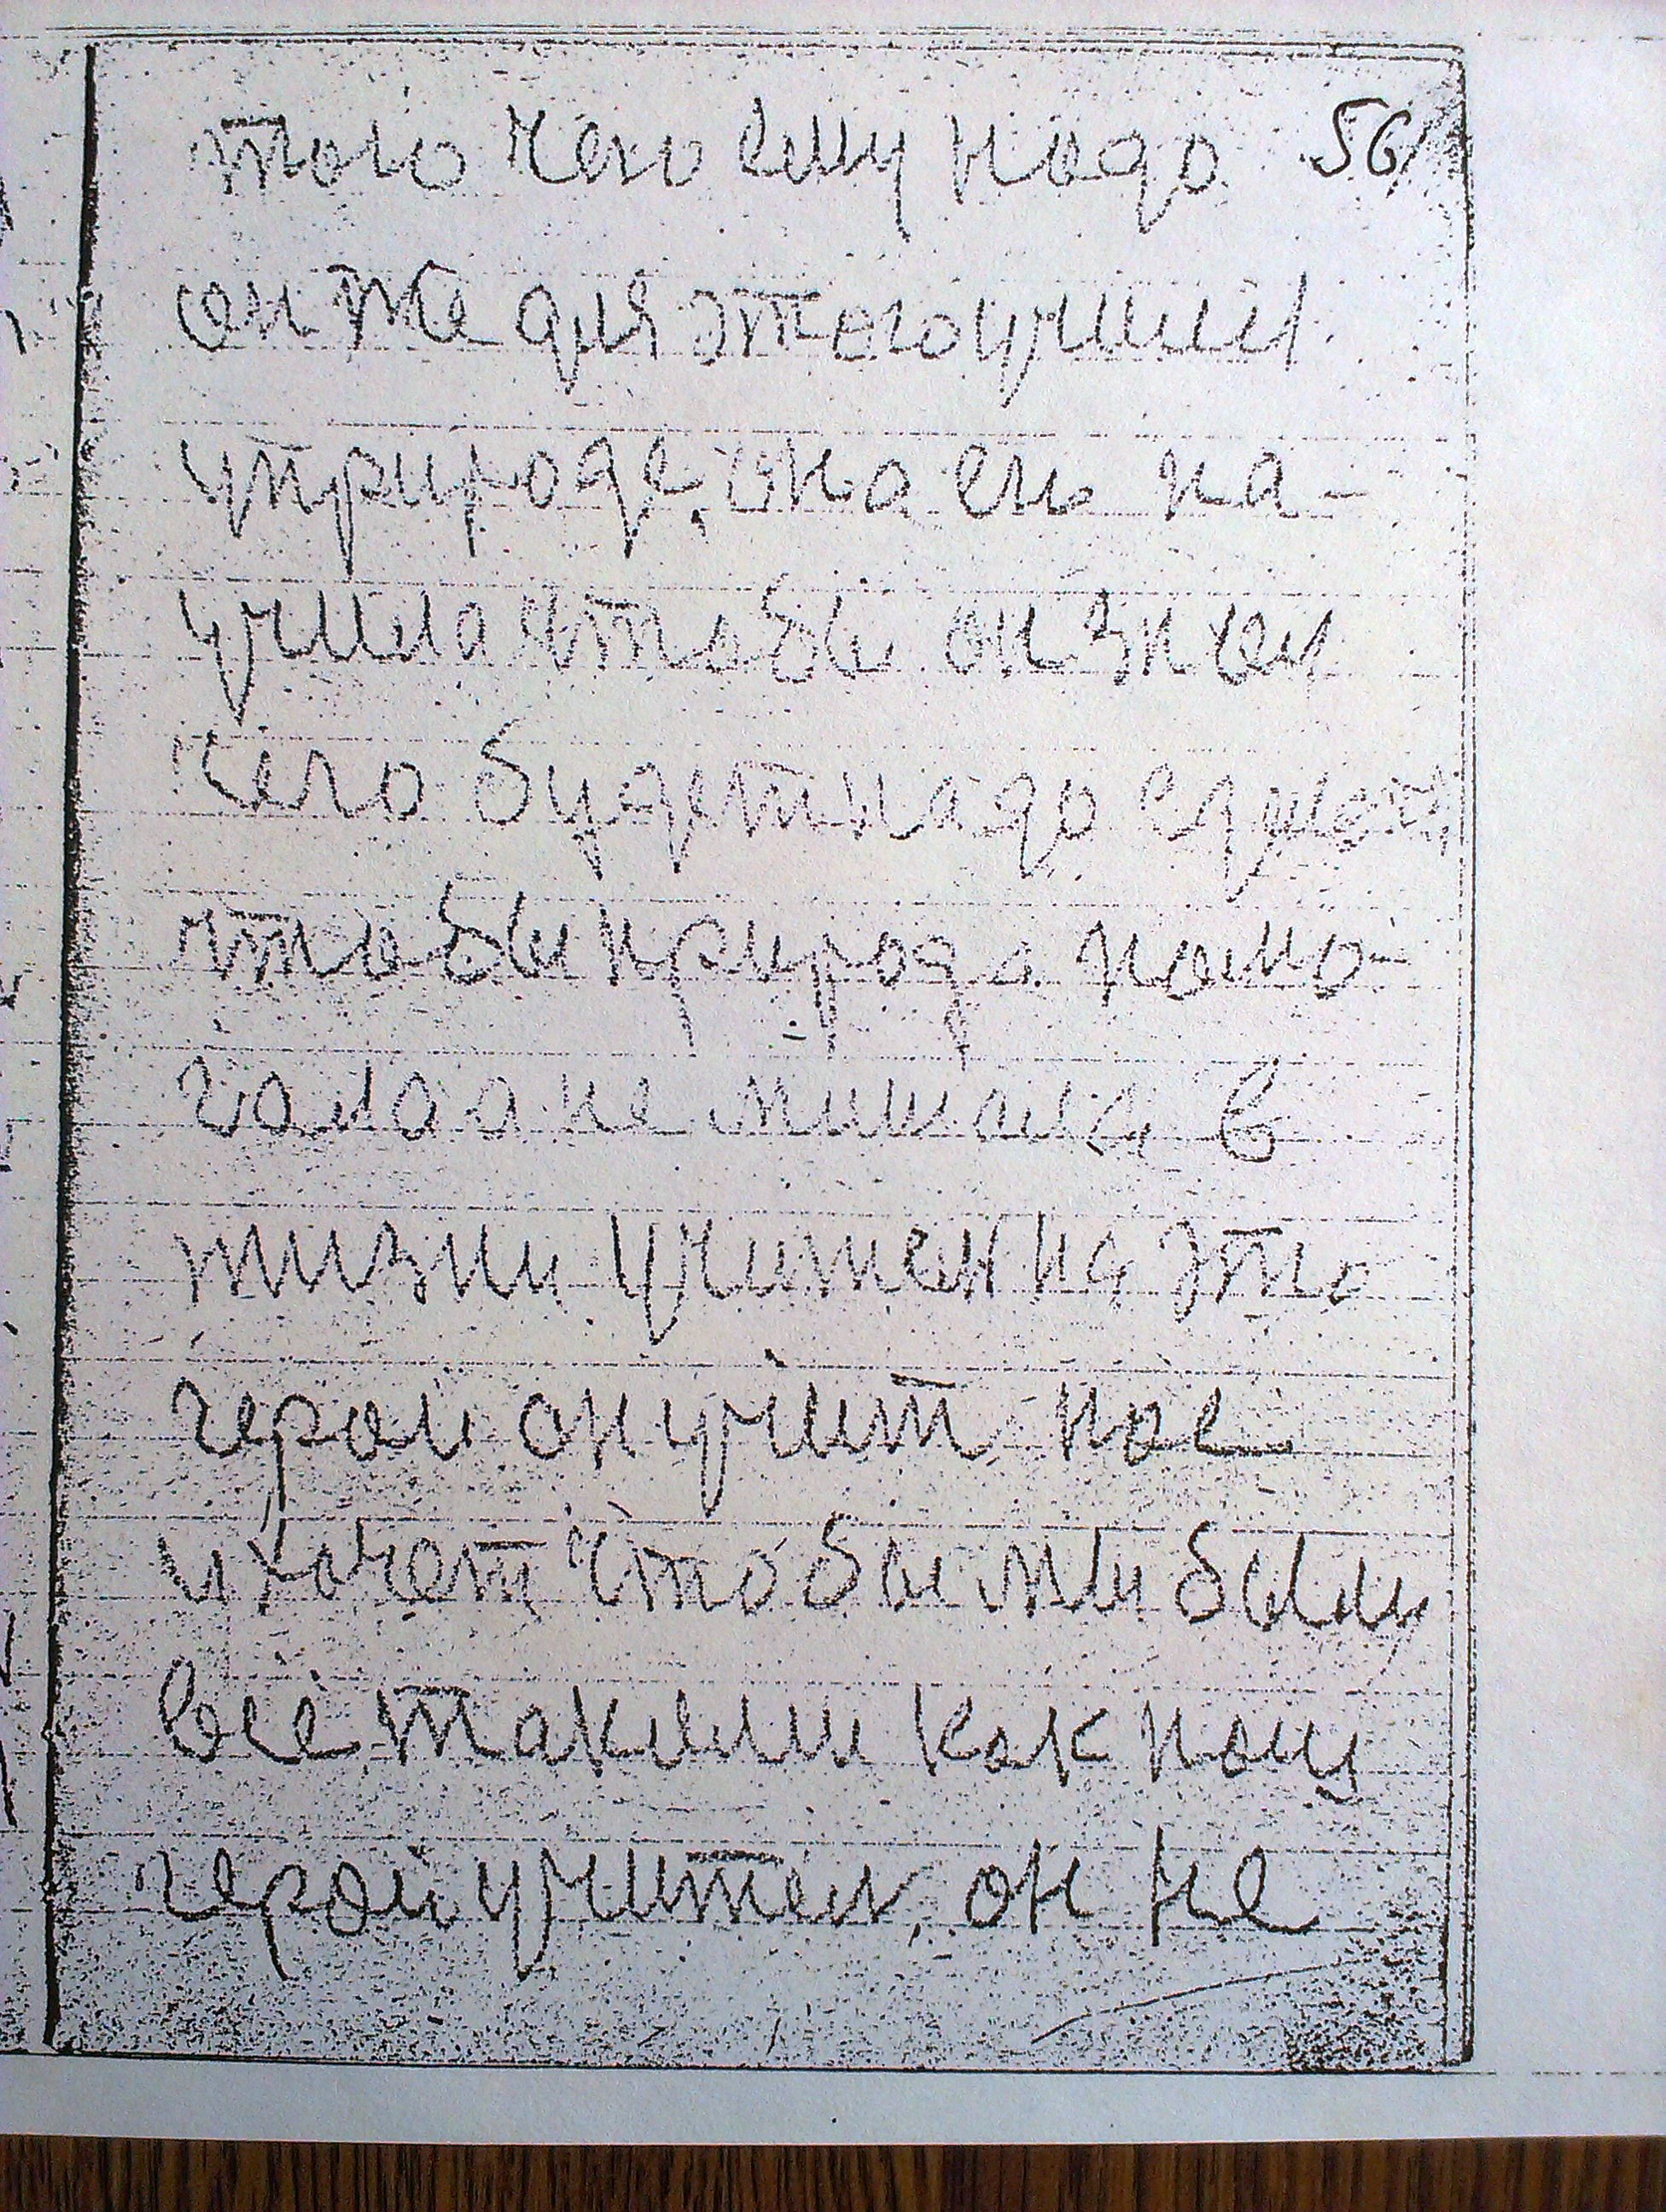 того чего ему надо 56
он же для этого учился
у природе, она его на-
учила чтобы он знал
чего будет надо сделать
чтобы природа помо-
гала а не мишала в
жизни Учитель наш это
герой он учит нас
и хочет чтобы мы были
все такими как наш
герой учитель, он не